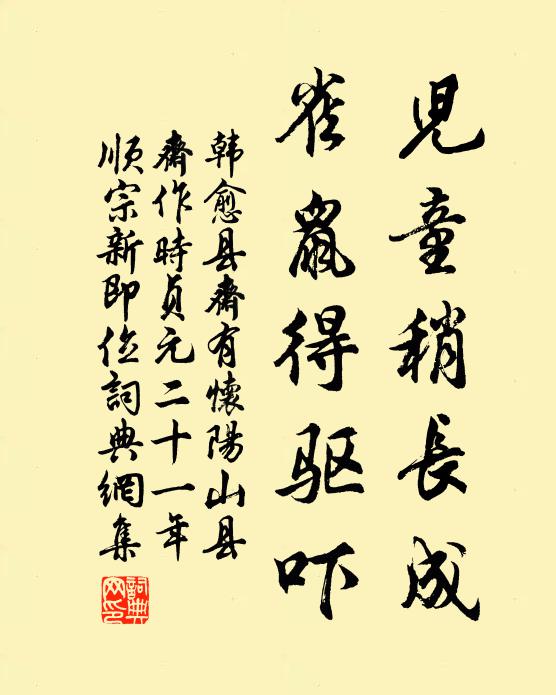 児童稍長成
雀鼠得驱吓
韩愈县齋有懷陽山县
齋作時貞元二十一年
順宗新即位詞典網集
詞典
网印